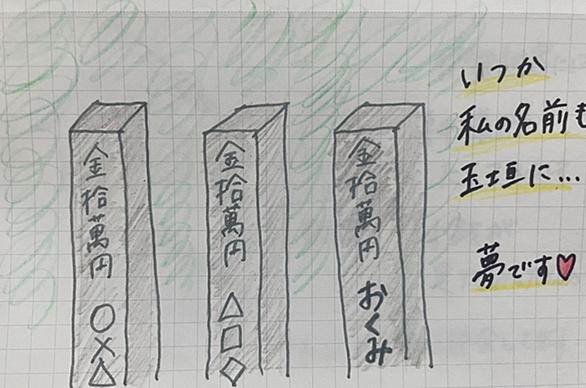 金拾萬円 〇×△
金拾萬円 △□◇
金拾萬円 おくみ
いつか
私の名前も
玉垣に...
夢です♥